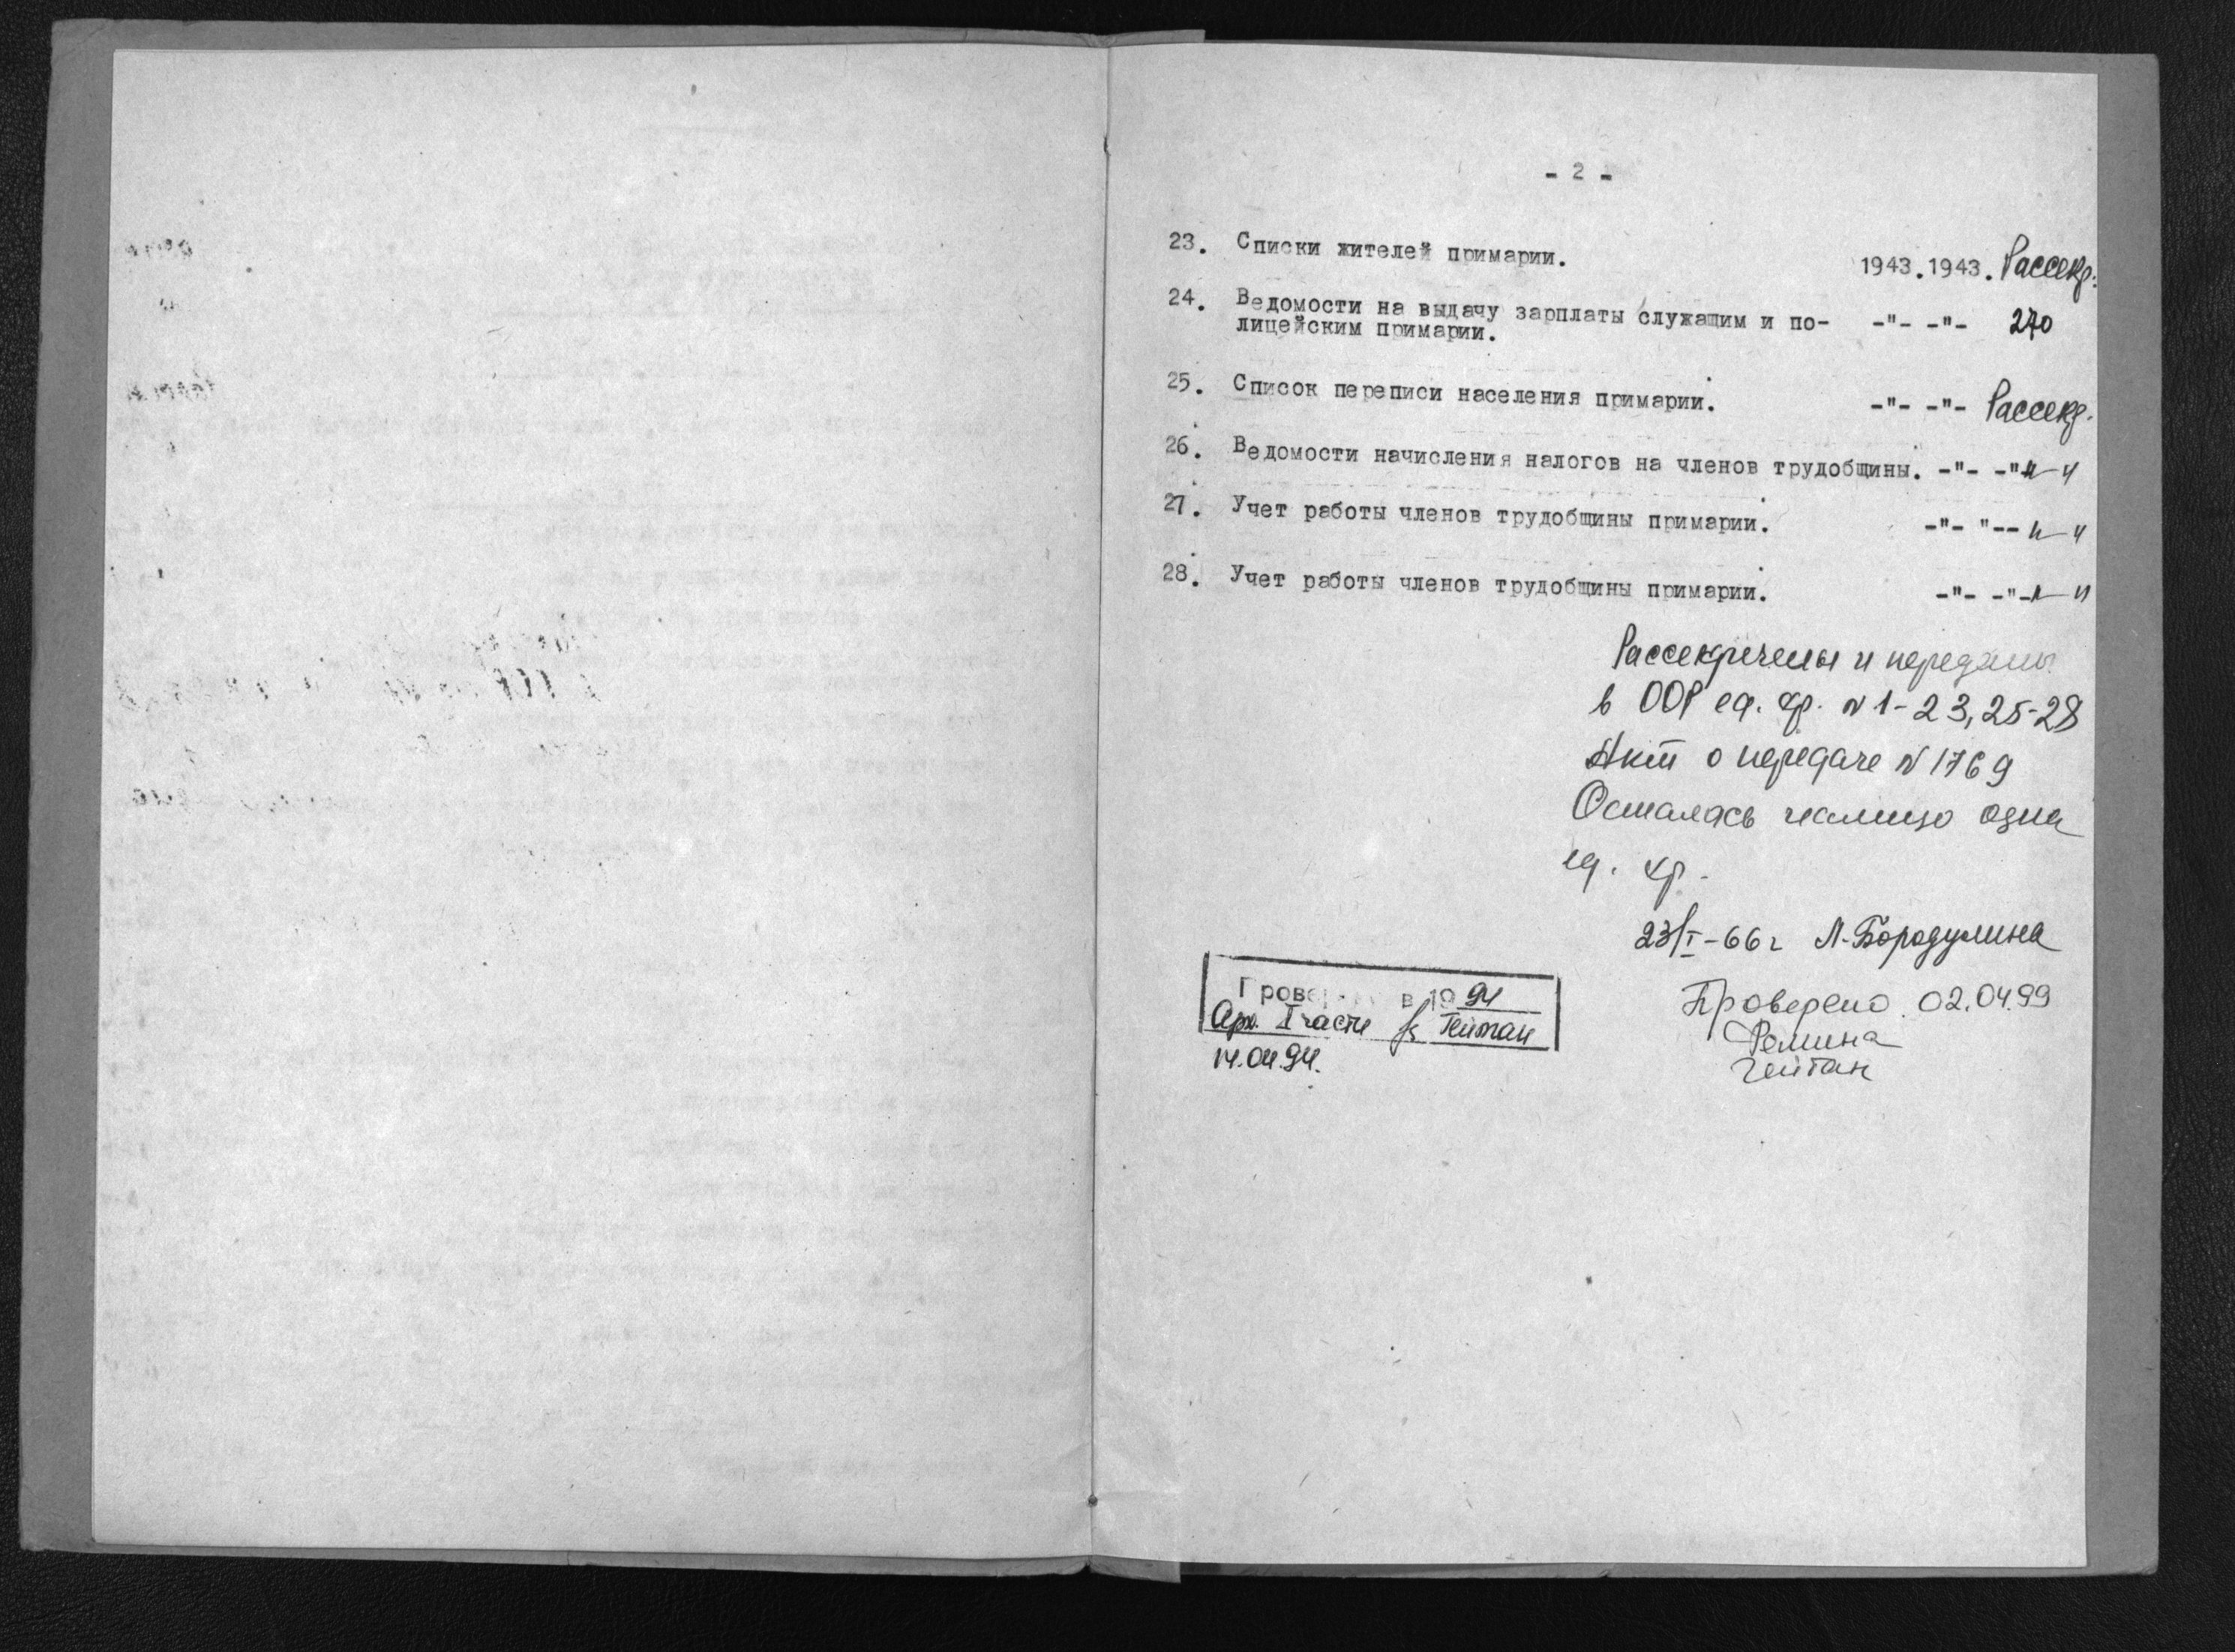 - 2 -
23. Списки жителей примарии. 1943.1943. Рассекр.
24. Ведомости на выдачу зарплаты служащим и по- -"- -"- 270
лицейским примарии.
25. Список переписи населения примарии. -"- -"- Рассекр.
26. Ведомости начисления налогов на членов трудобщины. -"- -"- "
27. Учет работы членов трудобщины примарии. -"- "-- " - "
28. Учет работы членов трудобщины примарии. -"- -"- " - "
Рассекречены и переданы
в ООФ ед. хр. N 1-23, 25-28
Акт о передаче N 1769
Осталась налицо одна
ед. хр.
23/I-66 г Л. Бородулина
Проверено в 1994
Арх. I части Гейтан
14.04.94.
Проверено 02.04.99
Гейтан